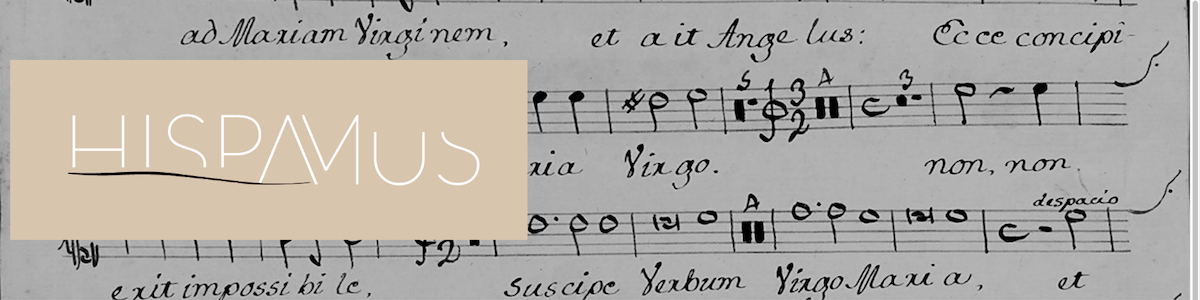 ad Mariam Virginem, et ait Angelus: Ecce concipi-
HISPAMUS
5 3 2 A 3
ria Virgo. non, non.
A despacio
2
erit impossibile, Suscipe Verbum Virgo Maria, et